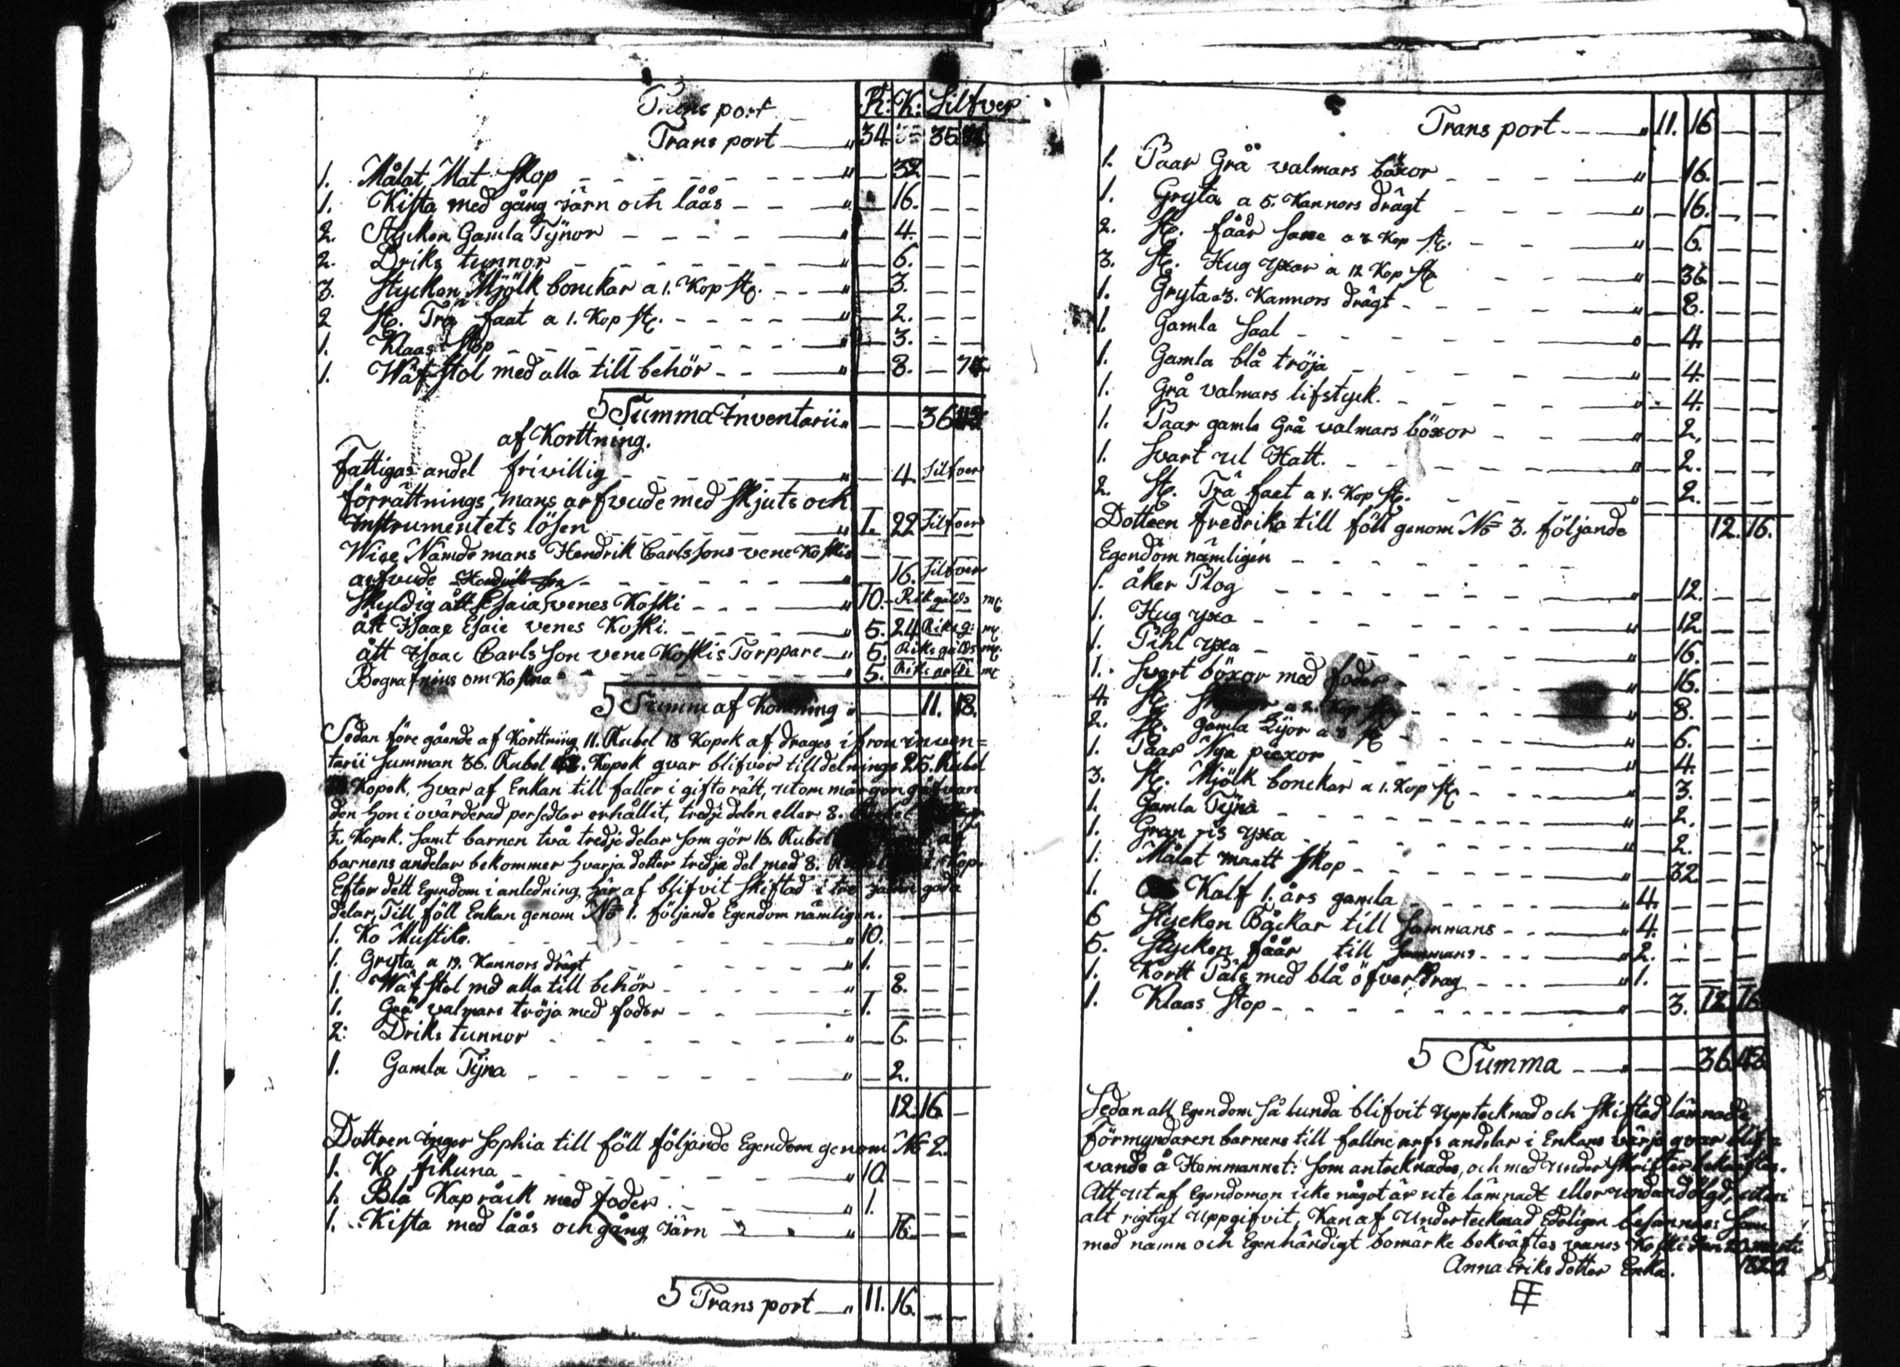 Transport R: K: Silfver
Transport „ 34 35
1. Målat Mat Skop „ 32
1. Kista med gång Järn och låås „ 16.
2. Stycken Gamla Tÿnor „ 4.
2. Driks tunnor „ 6.
3. Stycken Mjölk bonckar a 1. Kop St. „ 3.
2 St. Trä faat a 1. Kop St. „ 2.
1. Klaas Stop „ 3.
1. Wäf Stol med alla till behör „ 8.
S Summa Inventarii „ 36
af Korttning.
fattigas andel frivillig „ 4 Silfver
förrättnings mans arfvude med Skjuts och
Instrumentets lösen „ 1. 22 Silfver
Wice Nämde mans Hendrik Carlssons vene Koskis
arfvude „ 16. Silfver
Skyldig ått Esaia venes Koski „ 10. Riksgälds
ått Isaac Esaie venes Koski. „ 5. 24 Riksg:
ått Isaac Carls Son vene Koskis Torppare „ 5. Riksgälds
Begrafnins om Kostna „ 5. Riksgälds
S Summa af Korttning „ 11. 18.
Sedan före gående af Korttning 11. Rubel 18 Kopek af drages ifron inven=
tarii Summan 36. Rubel Kopek qvar blifver till delnings 25. Rubel
Kopek, hvar af Enkan till faller i gifto rätt, utom morgongåfvan
den hon i ovärderad persedlar erhållit, tredje delen eller 8.
Kopek. Samt barnen två tredje delar Som gör 16. Rubel
barnens andelar bekommer hvarja dotter tredje del med 8. Kop.
Efter dett Egendom i anledning här af blifvit Skiftad i tre goda
delar, Till föll Enkan genom No 1. följande Egendom nämligen.
1. Ko Mustike. „ 10.
1. Gryta a 19. Kannors drägt „ 1.
1. Wäf Stol med alla till behör „ 8.
1. Grå valmars tröja med foder 1.
2. Driks tunnor „ 6.
1. Gamla Tÿna „ 2.
12 16
Dottren Inger Sophia till föll följande Egendom genom No 2.
1. Ko fikuna „ 10.
1. Blå Kap råck med foder „ 1.
1. Kista med låås och gång Järn „ 16.
S Transport „ 11. 16.
Transport „ 11. 16
1. Paar Grå valmars böxor „ 16.
1. Gryta a 5. Kannors drägt „ 16.
2. St. fåår Saxe a 3 Kop St. „ 6.
3. St. Hug yxor a 12 Kop St. „ 36
1. Gryta a 3. Kannors drägt „ 8.
1. Gamla Saal 4.
1. Gamla blå tröja „ 4.
1. Grå valmars lifstyck. „ 4.
1. Paar gamla Grå valmars böxor „ 2.
1. Svart ul Hatt. „ 2.
2. St. Trä faat a 1. Kop St. „ 2.
Dotteen fredrika till föll genom No 3. följande 12. 16.
Egendom nämligin
1. åker Plog „ 12.
1. Hug yxa „ 12.
1. Pihl yxa „ 16.
1. Svart böxor med foder „ 16.
4. St. „ 8.
2. St. gamla Lÿor a 3 St „ 6.
1. Paar Nya piexor „ 4.
3. St. Mjölk bonckar a 1. Kop St. „ 3.
1. Gamla Tÿna „ 2.
1. Gran ris yxa „ 2.
1. Målat maatt Skop 32
1. Kalf 1. års gamla „ 4.
6 Stycken Båckar till Sammans „ 4.
5. Stycken fåår till Sammans „ 2.
1. Kortt Päls med blå öfverdrag „ 1.
1. Klaas Stop 3. 12 16
S Summa 36. 48
Sedan all Egendom Så lunda blifvit Upptecknad och Skiftad lämnade
förmyndaren barnens till fallne arfs andelar i Enkans värjo qvar blif=
vande å Hemmannet: Som antecknades, och med under Skrifter bekräftes.
Att ut af Egendomen icke något är ute lämnadt eller undandölgd, utan
alt rigtigt Uppgifvit, Kan af Undertecknad Edeligen besannas Som
med namn och Egenhändigt bomärke bekräftes venes Koski den
Anna Eriks dotter Enka.